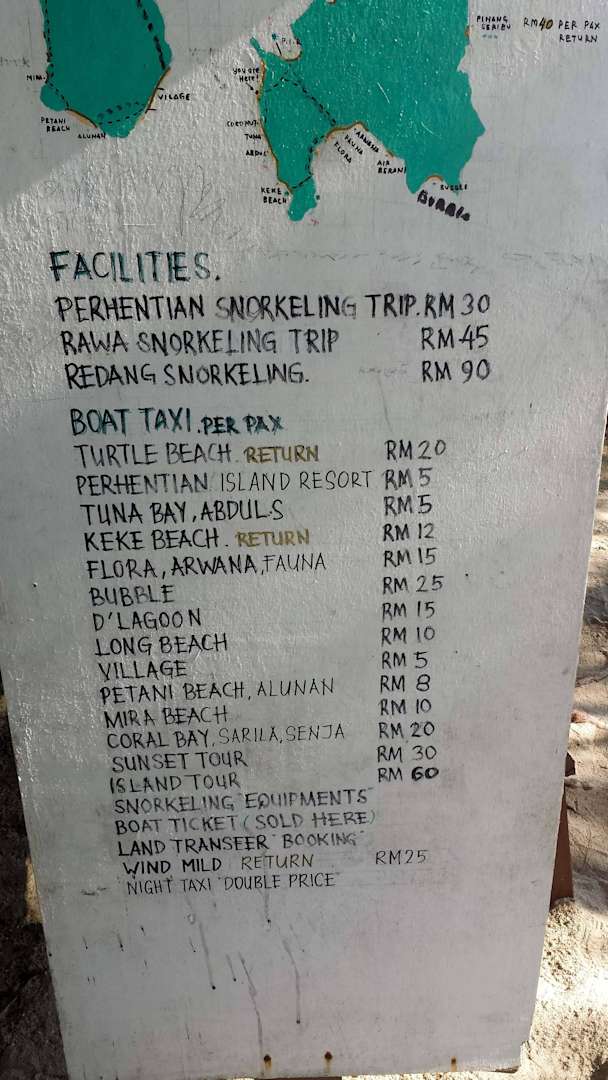 PINANG
SERIBU RM40 PER PAX
RETURN
P.I.R
YOU ARE
HERE!
MIRA
VILAGE
PETANI
BEACH
ALUNAN
COCONUT
TUNA
ABDUL
ARWANA
FAUNA
FLORA
AIR
BERANI
KEKE
BEACH
BUBBLE
FACILITIES.
PERHENTIAN SNORKELING TRIP. RM 30
RAWA SNORKELING TRIP RM 45
REDANG SNORKELING. RM 90
BOAT TAXI .PER PAX
TURTLE BEACH. RETURN RM 20
PERHENTIAN ISLAND RESORT RM 5
TUNA BAY, ABDUL.S RM 5
KEKE BEACH. RETURN RM 12
FLORA, ARWANA, FAUNA RM 15
BUBBLE RM 25
D'LAGOON RM 15
LONG BEACH RM 10
VILLAGE RM 5
PETANI BEACH, ALUNAN RM 8
MIRA BEACH RM 10
CORAL BAY, SARILA, SENJA RM 20
SUNSET TOUR RM 30
ISLAND TOUR RM 60
SNORKELING "EQUIPMENTS"
BOAT TICKET (SOLD HERE)
LAND TRANSEER "BOOKING"
WIND MILD RETURN RM25
"NIGHT TAXI "DOUBLE PRICE"